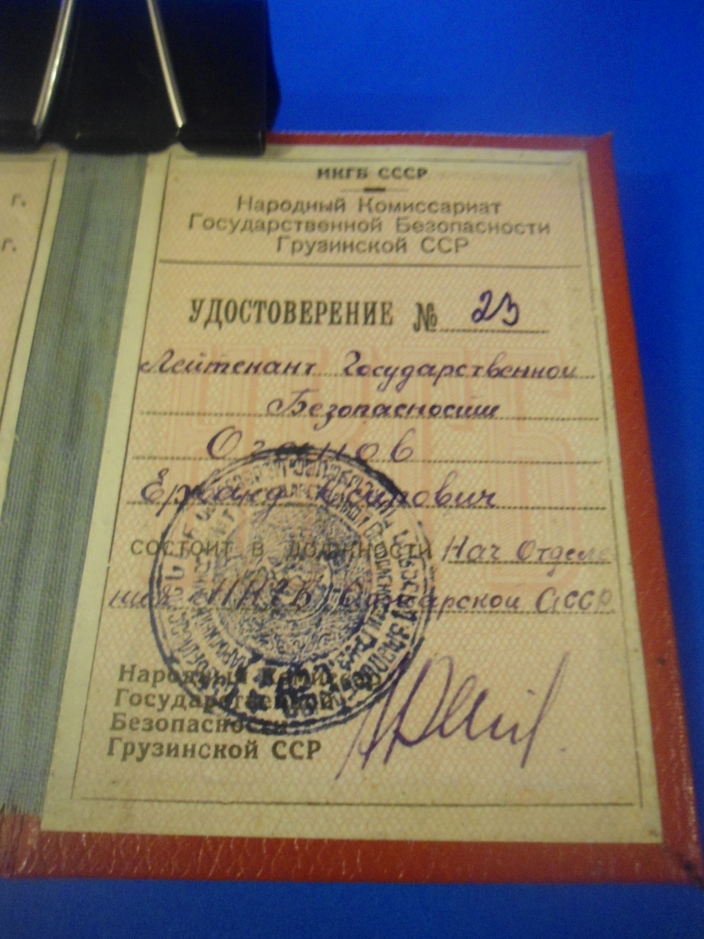 г.
г.
НКГБ СССР
Народный Комиссариат
Государственной Безопасности
Грузинской ССР
УДОСТОВЕРЕНИЕ № 23
Лейтенант Государственной
Безопасности
Оганов
Ерванд
состоит в должности Нач Отделе
ния НКГБ Аджарской АССР
Народный Комиссар
Государственной
Безопасности
Грузинской ССР